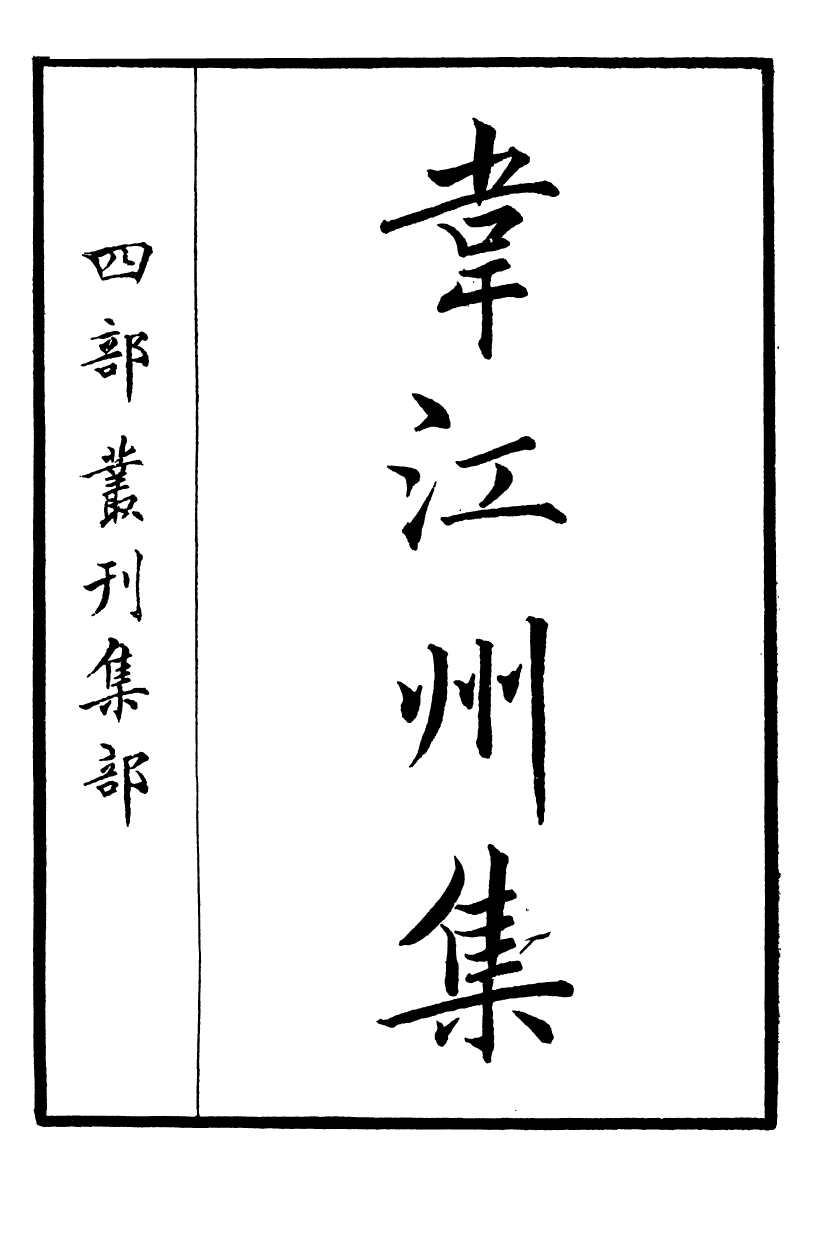 韋江州集
四部叢刊集部